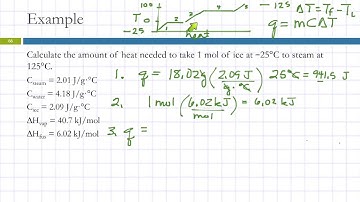 Example
100
T 0
-25
1 2 3 4 5
heat
- 125 ΔT = Tf - Ti
q = mCΔT
Calculate the amount of heat needed to take 1 mol of ice at −25°C to steam at
125°C.
Csteam = 2.01 J/g·°C
Cwater = 4.18 J/g·°C
Cice = 2.09 J/g·°C
ΔHvap = 40.7 kJ/mol
ΔHfus = 6.02 kJ/mol
1. q = 18,02g (2.09 J / g·°C) 25°C = 941.5 J
2. 1 mol (6.02 kJ / mol) = 6.02 kJ
3. q =